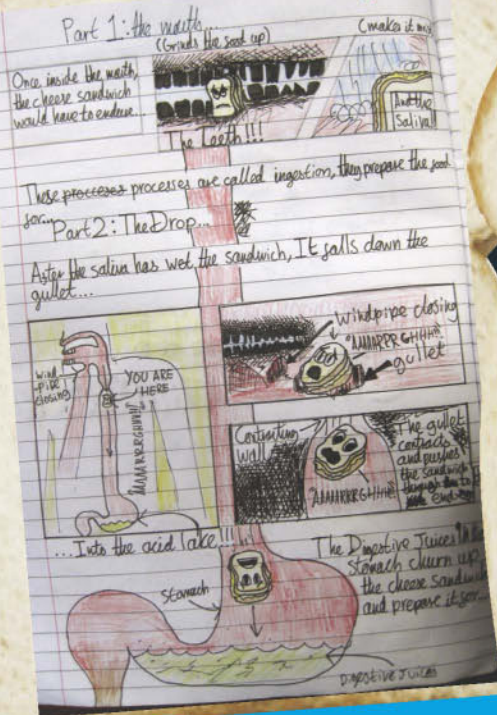 Part 1: the mouth...
(Grinds the food up)
(makes it
Once inside the mouth,
the cheese sandwich
would have to endure...
The Teeth!!!
And the
Saliva!!
These processes are called ingestion, they prepare the food
for...
Part 2: The Drop...
After the saliva has wet the sandwich, It falls down the
gullet...
wind
-pipe
closing
YOU ARE
HERE
"AAAAARRRGHHH!!"
windpipe closing
"AAAARRRGHHH!"
gullet
Contracting
wall
"AAAAARRRGHHH!"
The gullet
contracts
and pushes
the sandwich
through to
end
...Into the acid lake!!!!
Stomach
The Digestive Juices in the
Stomach churn up
the cheese sandwich
and prepare it for...
Digestive Juices